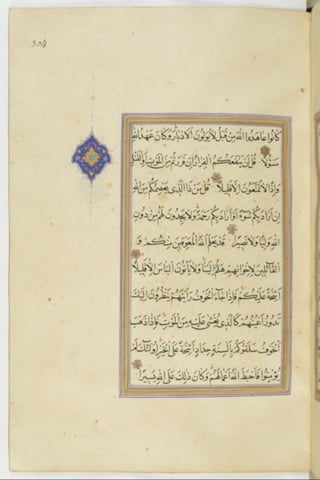 304
كَانُوا عَاهَدُوا اللَّهَ مِنْ قَبْلُ لَا يُوَلُّونَ الْأَدْبَارَ وَكَانَ عَهْدُ اللَّهِ
مَسْؤُلًا قُلْ لَنْ يَنْفَعَكُمُ الْفِرَارُ إِنْ فَرَرْتُمْ مِنَ الْمَوْتِ أَوِ الْقَتْلِ
وَإِذًا لَا تُمَتَّعُونَ إِلَّا قَلِيلًا قُلْ مَنْ ذَا الَّذِي يَعْصِمُكُمْ مِنَ اللَّهِ
إِنْ أَرَادَ بِكُمْ سُوءًا أَوْ أَرَادَ بِكُمْ رَحْمَةً وَلَا يَجِدُونَ لَهُمْ مِنْ دُونِ
اللَّهِ وَلِيًّا وَلَا نَصِيرًا قَدْ يَعْلَمُ اللَّهُ الْمُعَوِّقِينَ مِنْكُمْ وَ
الْقَائِلِينَ لِإِخْوَانِهِمْ هَلُمَّ إِلَيْنَا وَلَا يَأْتُونَ الْبَأْسَ إِلَّا قَلِيلًا
أَشِحَّةً عَلَيْكُمْ فَإِذَا جَاءَ الْخَوْفُ رَأَيْتَهُمْ يَنْظُرُونَ إِلَيْكَ
تَدُورُ أَعْيُنُهُمْ كَالَّذِي يُغْشَى عَلَيْهِ مِنَ الْمَوْتِ فَإِذَا ذَهَبَ
الْخَوْفُ سَلَقُوكُمْ بِأَلْسِنَةٍ حِدَادٍ أَشِحَّةً عَلَى الْخَيْرِ أُولَئِكَ لَمْ
يُؤْمِنُوا فَأَحْبَطَ اللَّهُ أَعْمَالَهُمْ وَكَانَ ذَلِكَ عَلَى اللَّهِ يَسِيرًا